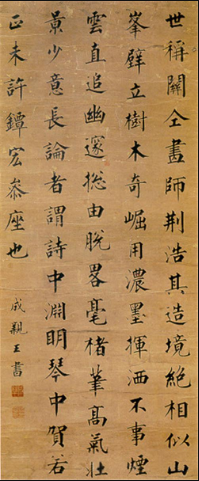 世稱關仝畫師荊浩其造境絕相似山
峯壁立樹木奇崛用濃墨揮洒不事煙
雲直追幽邃捴由脫畧毫楮筆高氣壯
景少意長論者謂詩中淵明琴中賀若
正未許鐔宏座也
成親王書